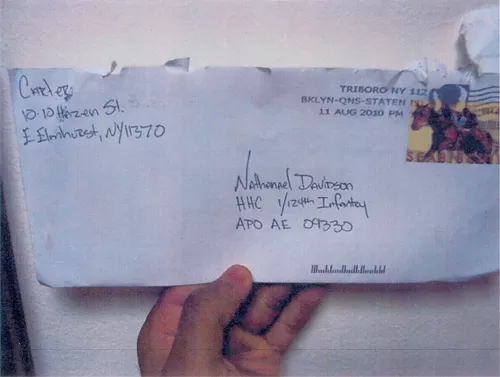 Carter
10-10 Hazen St.
E Elmhurst, NY 11370
TRIBORO NY 112
BKLYN-QNS-STATEN
11 AUG 2010 PM
SEABISCUIT
Nathanael Davidson
HHC 1/124th Infantry
APO AE 09330